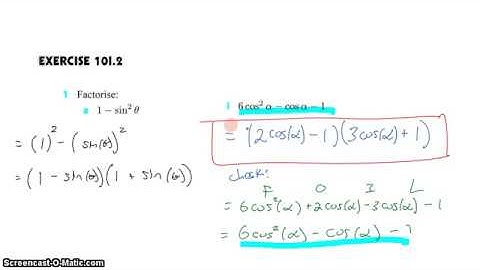 EXERCISE 10I.2
1 Factorise:
a 1 − sin² θ
= (1)² − (sin(θ))²
= (1 − sin(θ))(1 + sin(θ))
f 6 cos² α − cos α − 1
= (2cos(α) − 1)(3cos(α) + 1)
check:
F O I L
= 6cos²(α) + 2cos(α) − 3cos(α) − 1
= 6cos²(α) − cos(α) − 1
Screencast-O-Matic.com